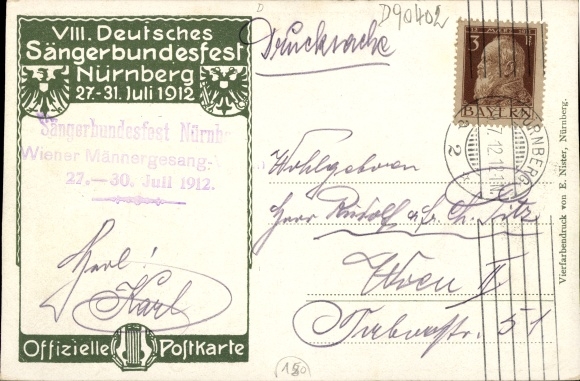 VIII. Deutsches
Sängerbundesfest
Nürnberg
27-31. Juli 1912
Sängerbundesfest Nürnb
Wiener Männergesang
27.—30. Juli 1912.
Karl
Offizielle Postkarte
D
D90402
Drucksache
3 Pf
BAYERN
NÜRNBERG
2
7. 12
Wohlgeboren
Herr Rudolf
Wien II
51
Vierfarbendruck von E. Nister, Nürnberg.
180